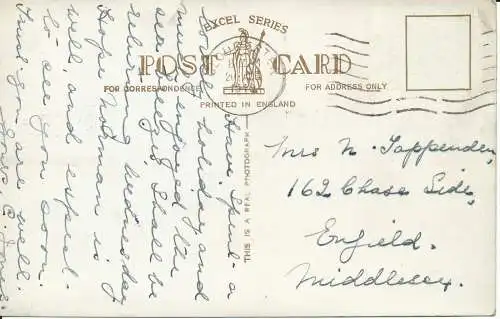 EXCEL SERIES
POST CARD
FOR CORRESPONDENCE
FOR ADDRESS ONLY
PRINTED IN ENGLAND
THIS IS A REAL PHOTOGRAPH
Have spent a
holiday and
much enjoyed the
Shall be
returning Wednesday
Hope Norman is
well, and
to see you soon.
Trust you are well.
Mrs N. Tappenden,
162 Chase Side,
Enfield.
Middlesex.